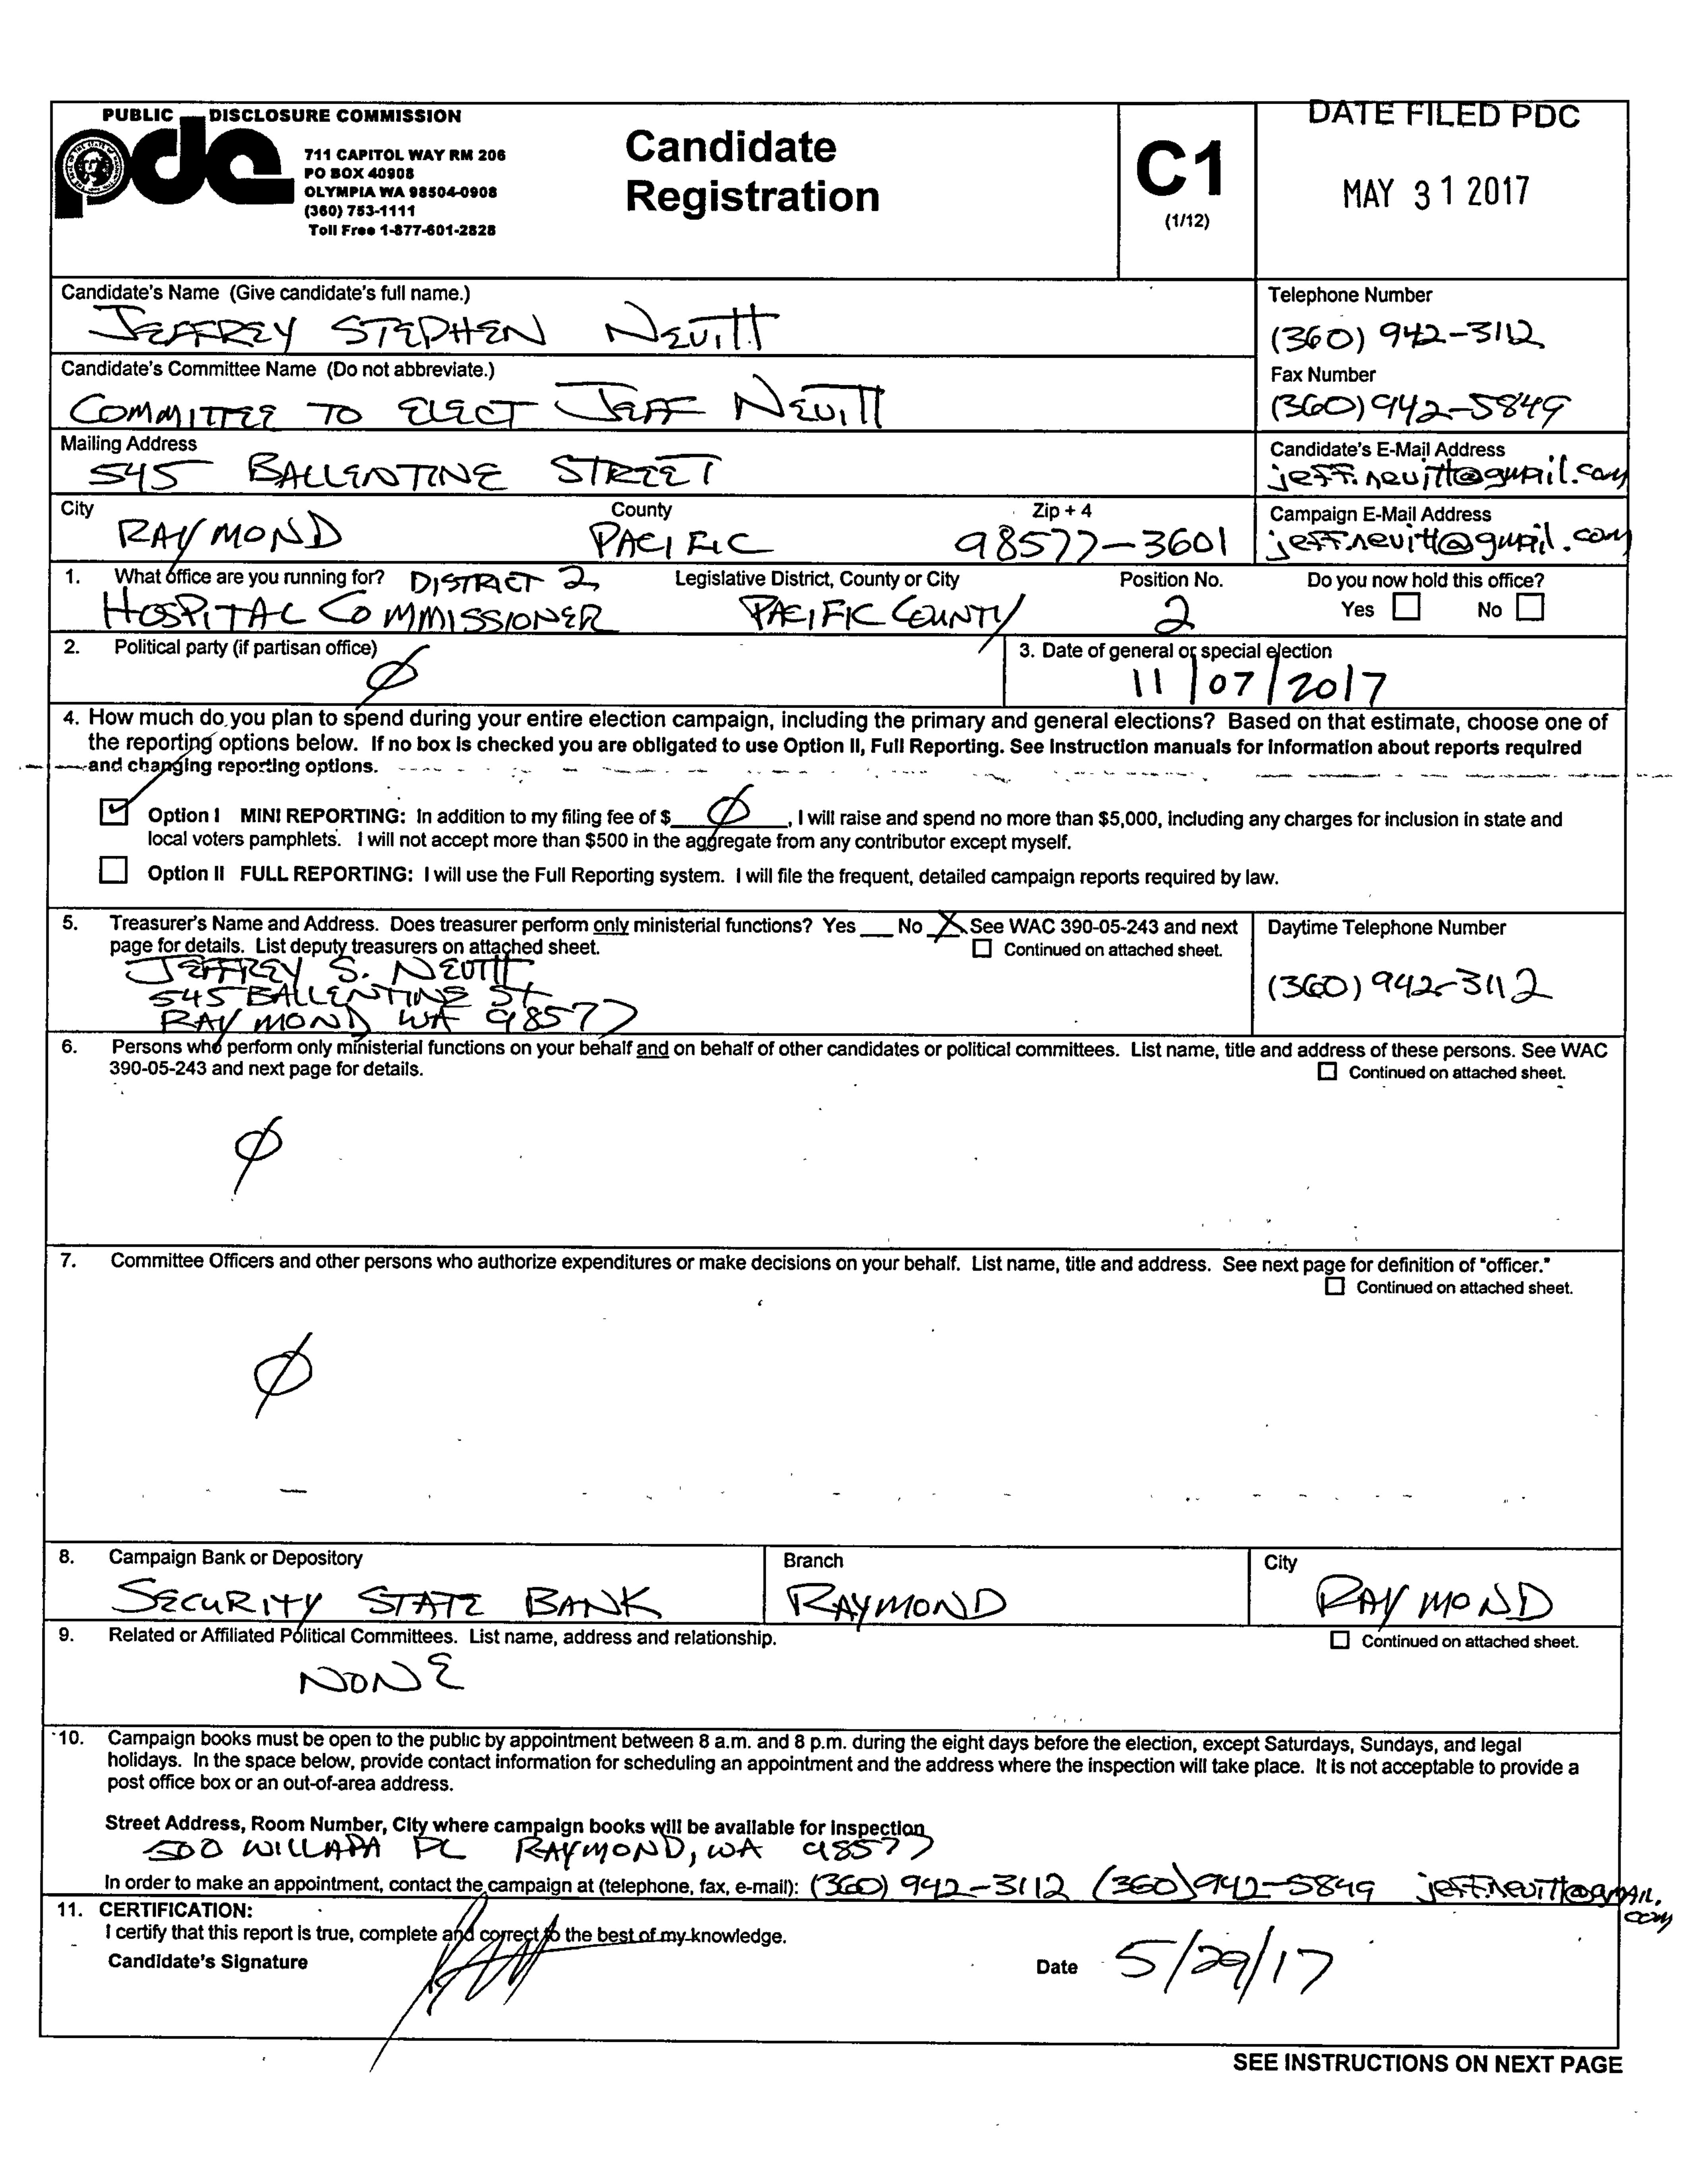 PUBLIC DISCLOSURE COMMISSION
pdc
711 CAPITOL WAY RM 206
PO BOX 40908
OLYMPIA WA 98504-0908
(360) 753-1111
Toll Free 1-877-601-2828
Candidate
Registration
C1
(1/12)
DATE FILED PDC
MAY 31 2017
Candidate's Name (Give candidate's full name.)
JEFFREY STEPHEN NEVITT
Telephone Number
(360) 942-3112
Candidate's Committee Name (Do not abbreviate.)
COMMITTEE TO ELECT JEFF NEVITT
Fax Number
(360) 942-5849
Mailing Address
545 BALLENTINE STREET
Candidate's E-Mail Address
jeff.nevitt@gmail.com
City County Zip + 4
RAYMOND PACIFIC 98577-3601
Campaign E-Mail Address
jeff.nevitt@gmail.com
1. What office are you running for? DISTRICT 2 Legislative District, County or City Position No. Do you now hold this office?
HOSPITAL COMMISSIONER PACIFIC COUNTY 2 Yes ☐ No ☐
2. Political party (if partisan office)
Ø
3. Date of general or special election
11/07/2017
4. How much do you plan to spend during your entire election campaign, including the primary and general elections? Based on that estimate, choose one of
the reporting options below. If no box is checked you are obligated to use Option II, Full Reporting. See instruction manuals for information about reports required
and changing reporting options.
☑ Option I MINI REPORTING: In addition to my filing fee of $ Ø , I will raise and spend no more than $5,000, including any charges for inclusion in state and
local voters pamphlets. I will not accept more than $500 in the aggregate from any contributor except myself.
☐ Option II FULL REPORTING: I will use the Full Reporting system. I will file the frequent, detailed campaign reports required by law.
5. Treasurer's Name and Address. Does treasurer perform only ministerial functions? Yes ___ No X See WAC 390-05-243 and next
page for details. List deputy treasurers on attached sheet. ☐ Continued on attached sheet.
JEFFREY S. NEVITT
545 BALLENTINE ST
RAYMOND WA 98577
Daytime Telephone Number
(360) 942-3112
6. Persons who perform only ministerial functions on your behalf and on behalf of other candidates or political committees. List name, title and address of these persons. See WAC
390-05-243 and next page for details. ☐ Continued on attached sheet.
Ø
7. Committee Officers and other persons who authorize expenditures or make decisions on your behalf. List name, title and address. See next page for definition of "officer."
☐ Continued on attached sheet.
Ø
8. Campaign Bank or Depository Branch City
SECURITY STATE BANK RAYMOND RAYMOND
9. Related or Affiliated Political Committees. List name, address and relationship. ☐ Continued on attached sheet.
NONE
10. Campaign books must be open to the public by appointment between 8 a.m. and 8 p.m. during the eight days before the election, except Saturdays, Sundays, and legal
holidays. In the space below, provide contact information for scheduling an appointment and the address where the inspection will take place. It is not acceptable to provide a
post office box or an out-of-area address.
Street Address, Room Number, City where campaign books will be available for inspection
500 WILLAPA PL RAYMOND, WA 98577
In order to make an appointment, contact the campaign at (telephone, fax, e-mail): (360) 942-3112 (360) 942-5849 jeff.nevitt@gmail.
com
11. CERTIFICATION:
I certify that this report is true, complete and correct to the best of my knowledge.
Candidate's Signature Date 5/29/17
SEE INSTRUCTIONS ON NEXT PAGE